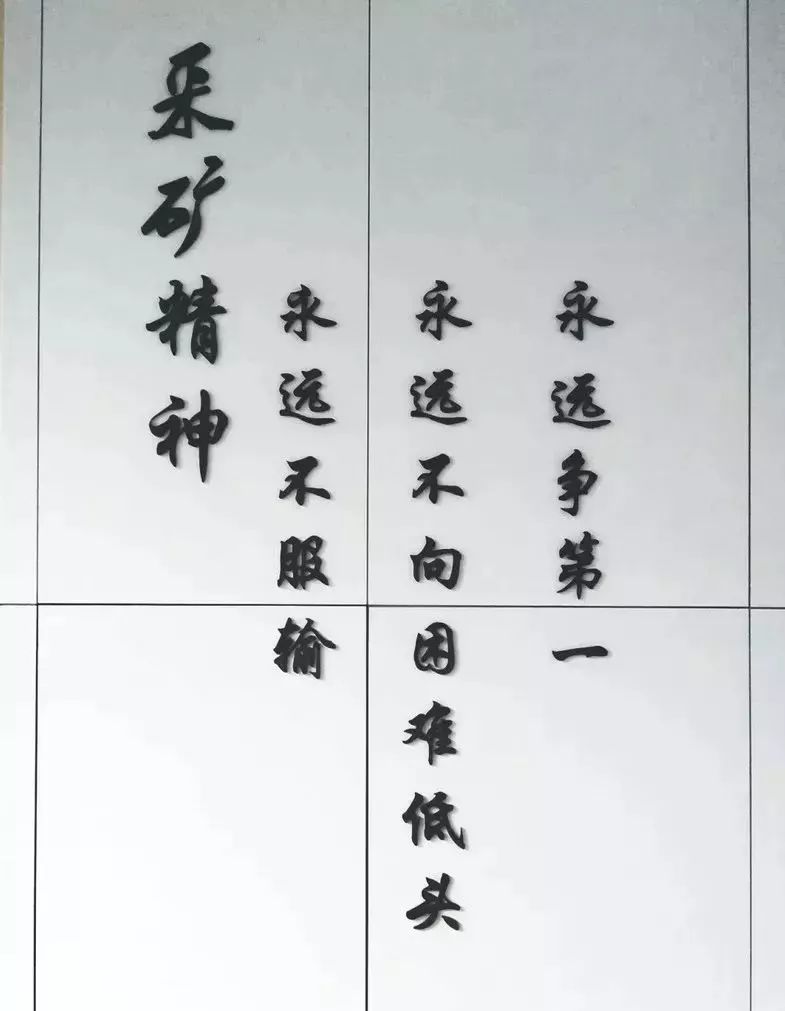 采矿精神
永远不服输
永远不向困难低头
永远争第一